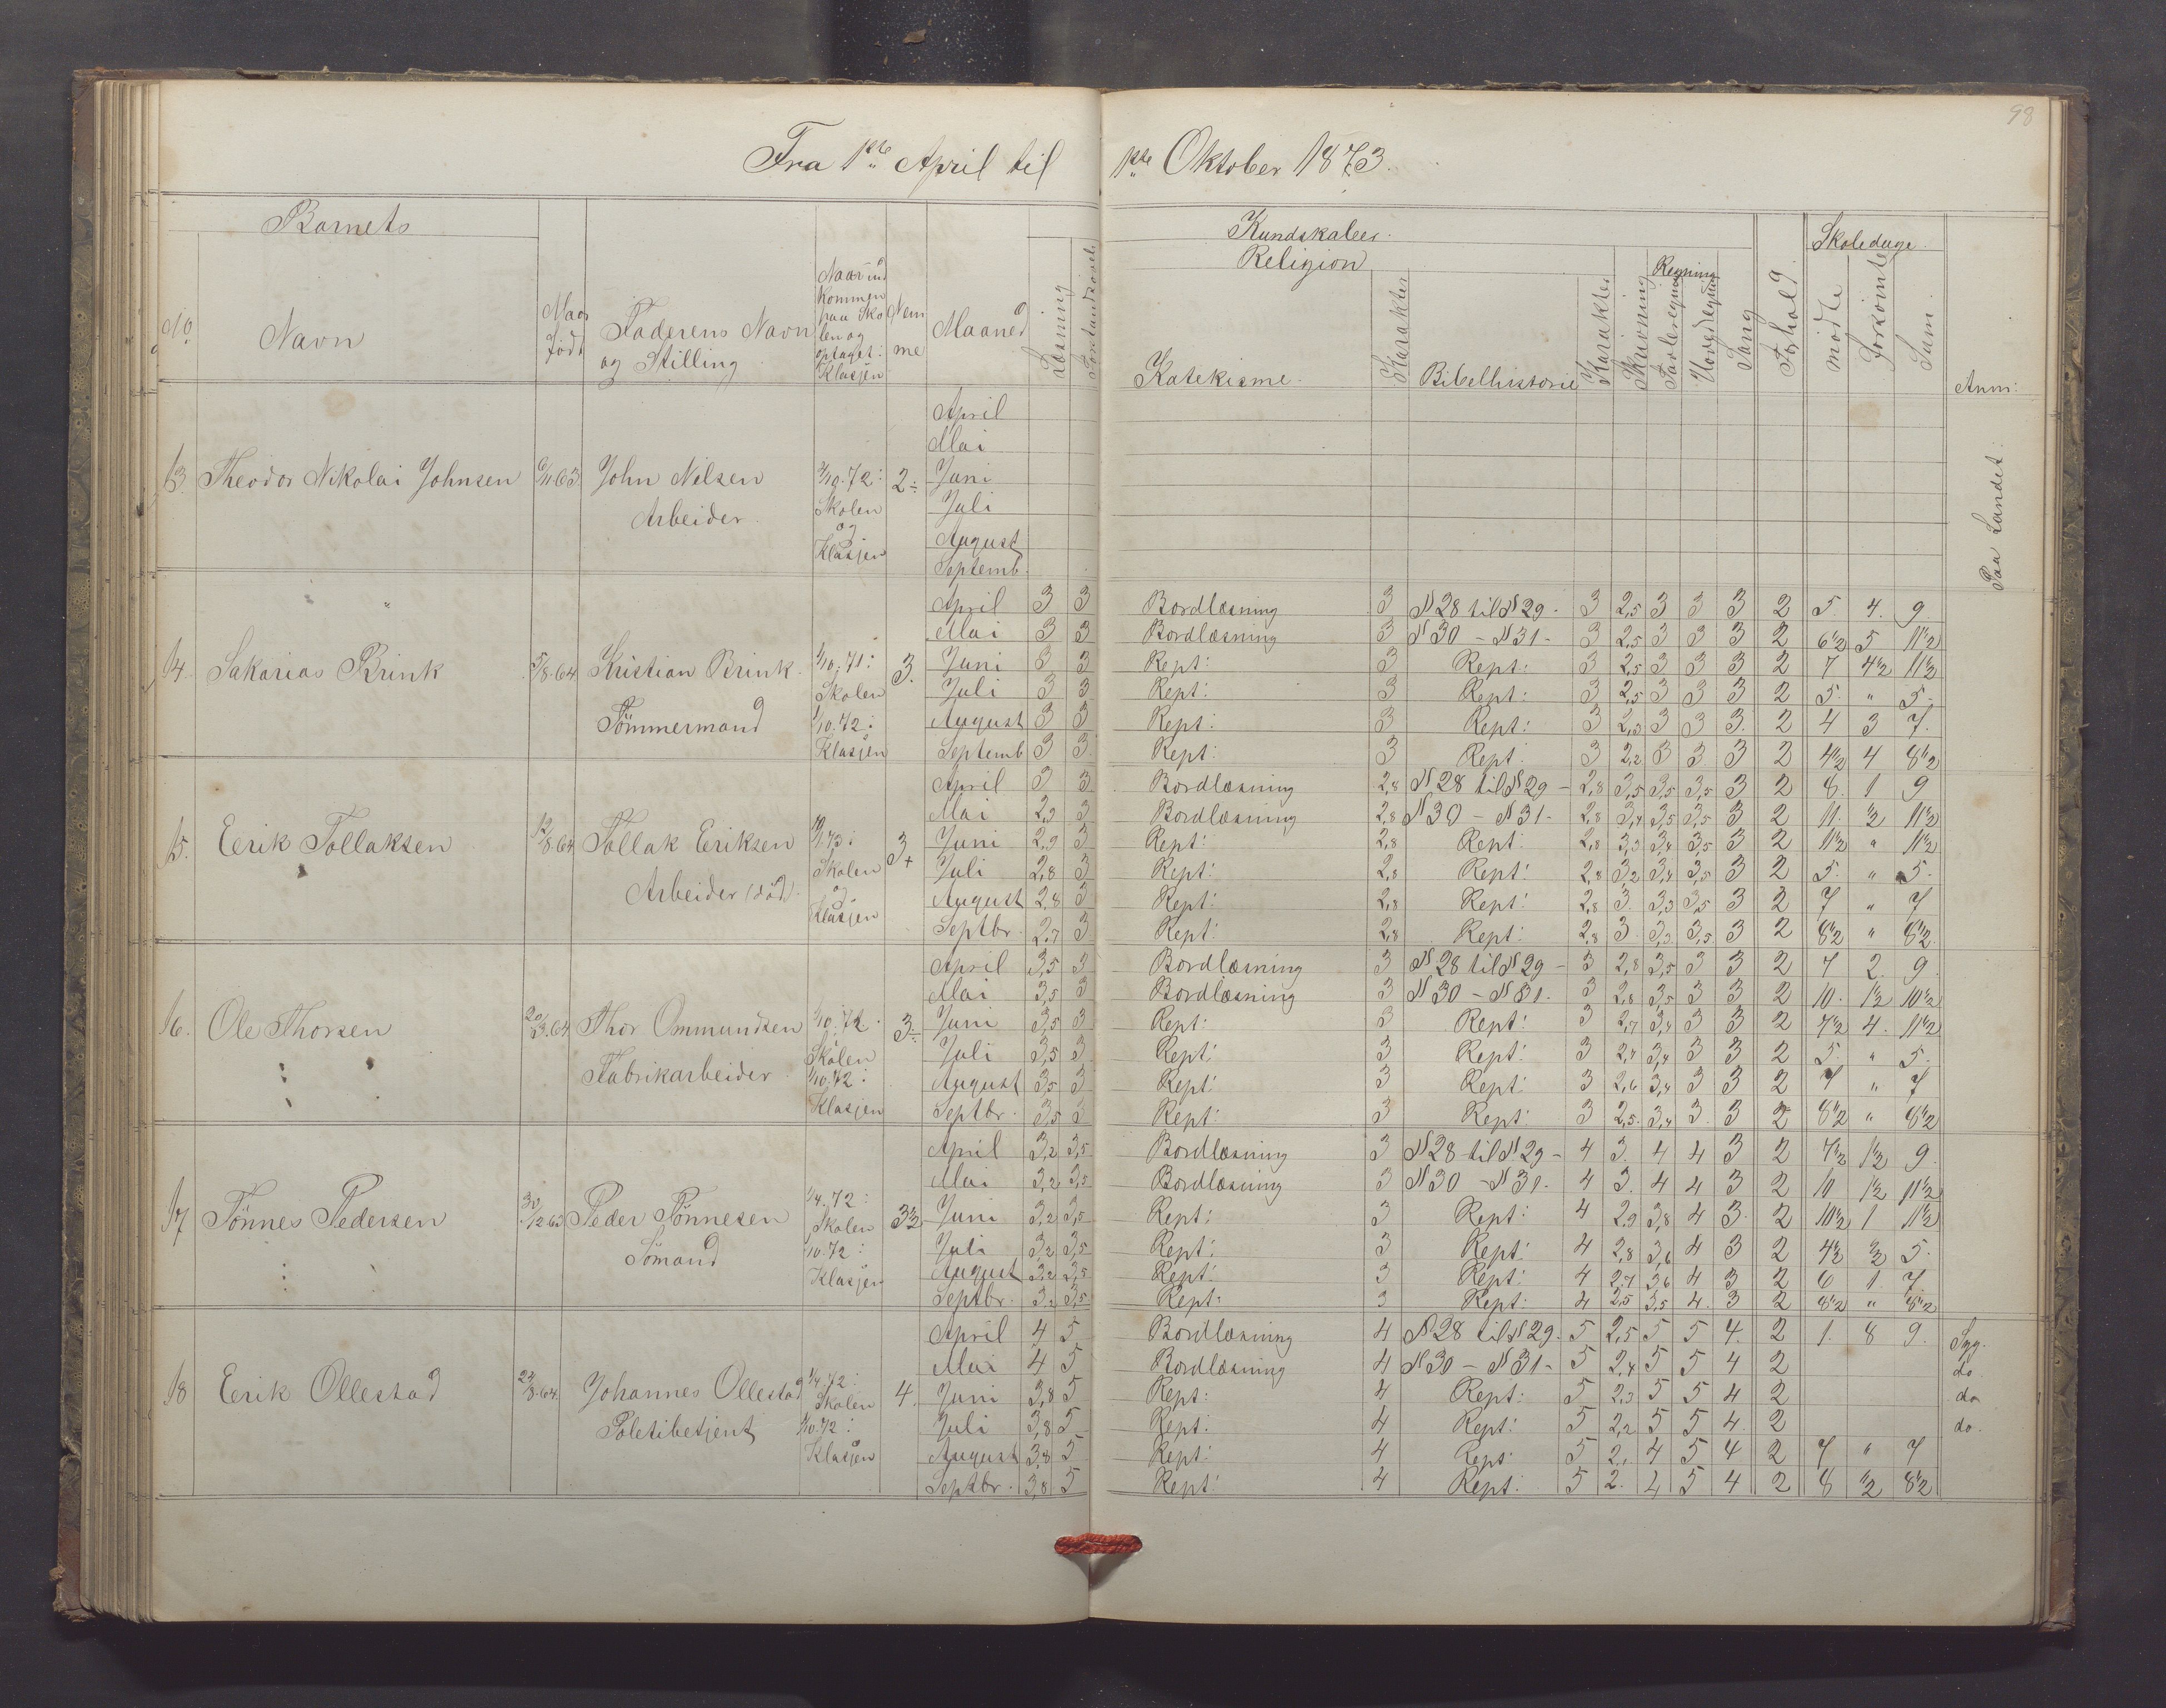 98
Fra 1ste April til 1ste Oktober 1873.
Barnets
Kundskaber.
Skoledage.
Religion
Regning
No Navn Naar født Faderens Navn og Stilling Naar ind kommen paa Skolen og optaget i Klassen Nemme Maaned Læsning Forstandsøvels Katekisme. Karakter Bibelhistorie Karakter Skrivning Tavleregning Hovedregning Sang Forhold mødte forsømte Sum. Anm:
13. Theodor Nikolai Johnsen 6/11.63. John Nilsen Arbeider. 1/10.72: Skolen og Klassen 2÷ Paa Landet
April
Mai
Juni
Juli
August
Septemb.
14. Sakarias Brink 5/8.64 Kristian Brink. Tömmermand 1/10.71: Skolen 1/10.72: Klassen 3.
April 3 3 Bordlæsning 3 N 28 til N 29. 3 2,5 3 3 3 2 5. 4. 9
Mai 3 3 Bordlæsning 3 N 30 – N 31- 3 2,5 3 3 3 2 6½ 5 11½
Juni 3 3 Rept: 3 Rept: 3 2,5 3 3 3 2 7 4½ 11½
Juli 3 3 Rept: 3 Rept: 3 2,5 3 3 3 2 5. " 5.
August 3 3 Rept: 3 Rept: 3 2,3 3 3 3. 2 4 3 7.
Septemb 3 3 Rept: 3 Rept: 3 2,2 3 3 3 2 4½ 4 8½
15. Eerik Tollaksen 12/8.64 Tollak Eriksen Arbeider (död). Skolen og Klassen 3+
April 3 3 Bordlæsning 2,8 N 28 til N 29 – 2,8 3,5 3,5 3,5 3 2 8. 1 9
Mai 2,9 3 Bordlæsning 2,8 N 30 – N 31- 2,8 3,4 3,5 3,5 3 2 11. ½ 11½
Juni 2,9 3 Rept: 2,8 Rept: 2,8 3,3 3,4 3,5 3 2 11½ " 11½
Juli 2,8 3 Rept: 2,8 Rept: 2,8 3,2 3,4 3,5 3 2 5. " 5.
August 2,8 3 Rept: 2,8 Rept: 2,8 3. 3,3 3,5 3 2 7 " 7
Septbr. 2,7 3 Rept: 2,8 Rept: 2,8 3 3,3 3,5 3 2 8½ " 8½
16. Ole Thorsen Thor Ommundsen Fabrikarbeider. 1/10.72 Skolen 1/10.72: Klassen 3÷
April 3,5 3 Bordlæsning 3 N 28 til N 29 – 3 2,8 3,5 3 3 2 7 2 9
Mai 3,5 3 Bordlæsning 3 N 30 – N 31. 3 2,8 3,5 3 3 2 10. 1½ 10½
Juni 3,5 3 Rept: 3 Rept: 3 2,7 3,4 3 3 2 7½ 4. 11½
Juli 3,5 3 Rept: 3 Rept: 3 2,7 3,4 3 3 2 5. " 5.
August 3,5 3 Rept: 3 Rept: 3 2,6 3,4 3 3 2 7 " 7
Septbr. 3,5 3 Rept: 3 Rept: 3 2,5. 3,4 3. 3 2 8½ " 8½
17 Tönnes Pedersen 30/12.63 Peder Tönnesen Sömand 1/4.72: Skolen 1/10.72: Klassen 3½
April 3,2 3,5 Bordlæsning 3 N 28 til N 29 – 4 3. 4 4 3 2 7½ 1½ 9.
Mai 3,2 3,5 Bordlæsning 3 N 30 – N 31. 4 3. 4 4 3 2 10 1½ 11½
Juni 3,2 3,5 Rept: 3 Rept: 4 2,9 3,8 4 3. 2 10½ 1 11½
Juli 3,2 3,5 Rept: 3 Rept: 4 2,8 3,6 4 3 2 4½ ½ 5.
August 3,2 3,5 Rept: 3 Rept: 4 2,7 3,6 4 3 2 6 1. 7
Septbr. 3,2 3,5 Rept: 3 Rept: 4 2,5 3,5 4. 3 2 8½ " 8½
18 Eerik Ollestad 22/8.64. Johannes Ollestad Poletibetjent 1/4.72: Skolen 1/10.72: Klassen 4.
April 4 5 Bordlæsning 4 N 28 til N 29. 5 2,5 5 5 4. 2 1. 8 9. Syg.
Mai 4 5 Bordlæsning 4 N 30 – N 31- 5 2,4 5 5 4 2 do
Juni 3,8 5 Rept: 4 Rept: 5 2,3 5 5 4 2 do
Juli 3,8 5 Rept: 4 Rept: 5 2,2 5 5 4. 2 do.
August 3,8 5 Rept: 4 Rept 5 2,1 4 5 4 2 7 " 7
Septbr. 3,8 5 Rept: 4 Rept: 5 2. 4 5 4 2 8 ½ 8½